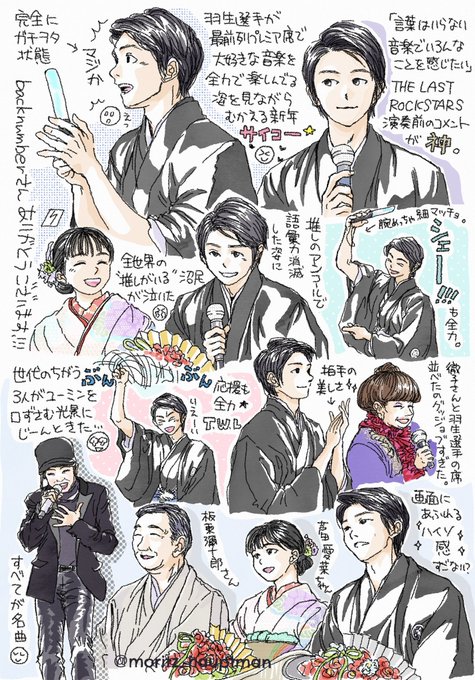 完全に
ガチヲタ
状態
マジか
羽生選手が
最前列プレミア席で
大好きな音楽を
全力で楽しんでる
姿を見ながら
むかえる新年
サイコー
「言葉はいらない
音楽でいろんな
ことを感じたい」
THE LAST
ROCKSTARS
演奏前のコメント
が神。
backnumberさん ありがとうございます!!!
全世界の
"推しがいる"沼民
が泣いた
推しのアンアルで
語彙力消滅
した姿に
腕めっちゃ細マッチョ。
シェー!!!
も全力。
世代のちがう
3人がユーミンを
口ずさむ光景に
じーんときた…
ぶんぶん
いえーい
応援も
全力
拍手の
美しさよ
徹子さんと羽生選手の席
並べたのグッジョブすぎた。
すべてが名曲
坂東彌十郎さん
高田愛菜ちゃん
画面に
あふれる
ハイソ
感
すごない?
@moritz_hauptman